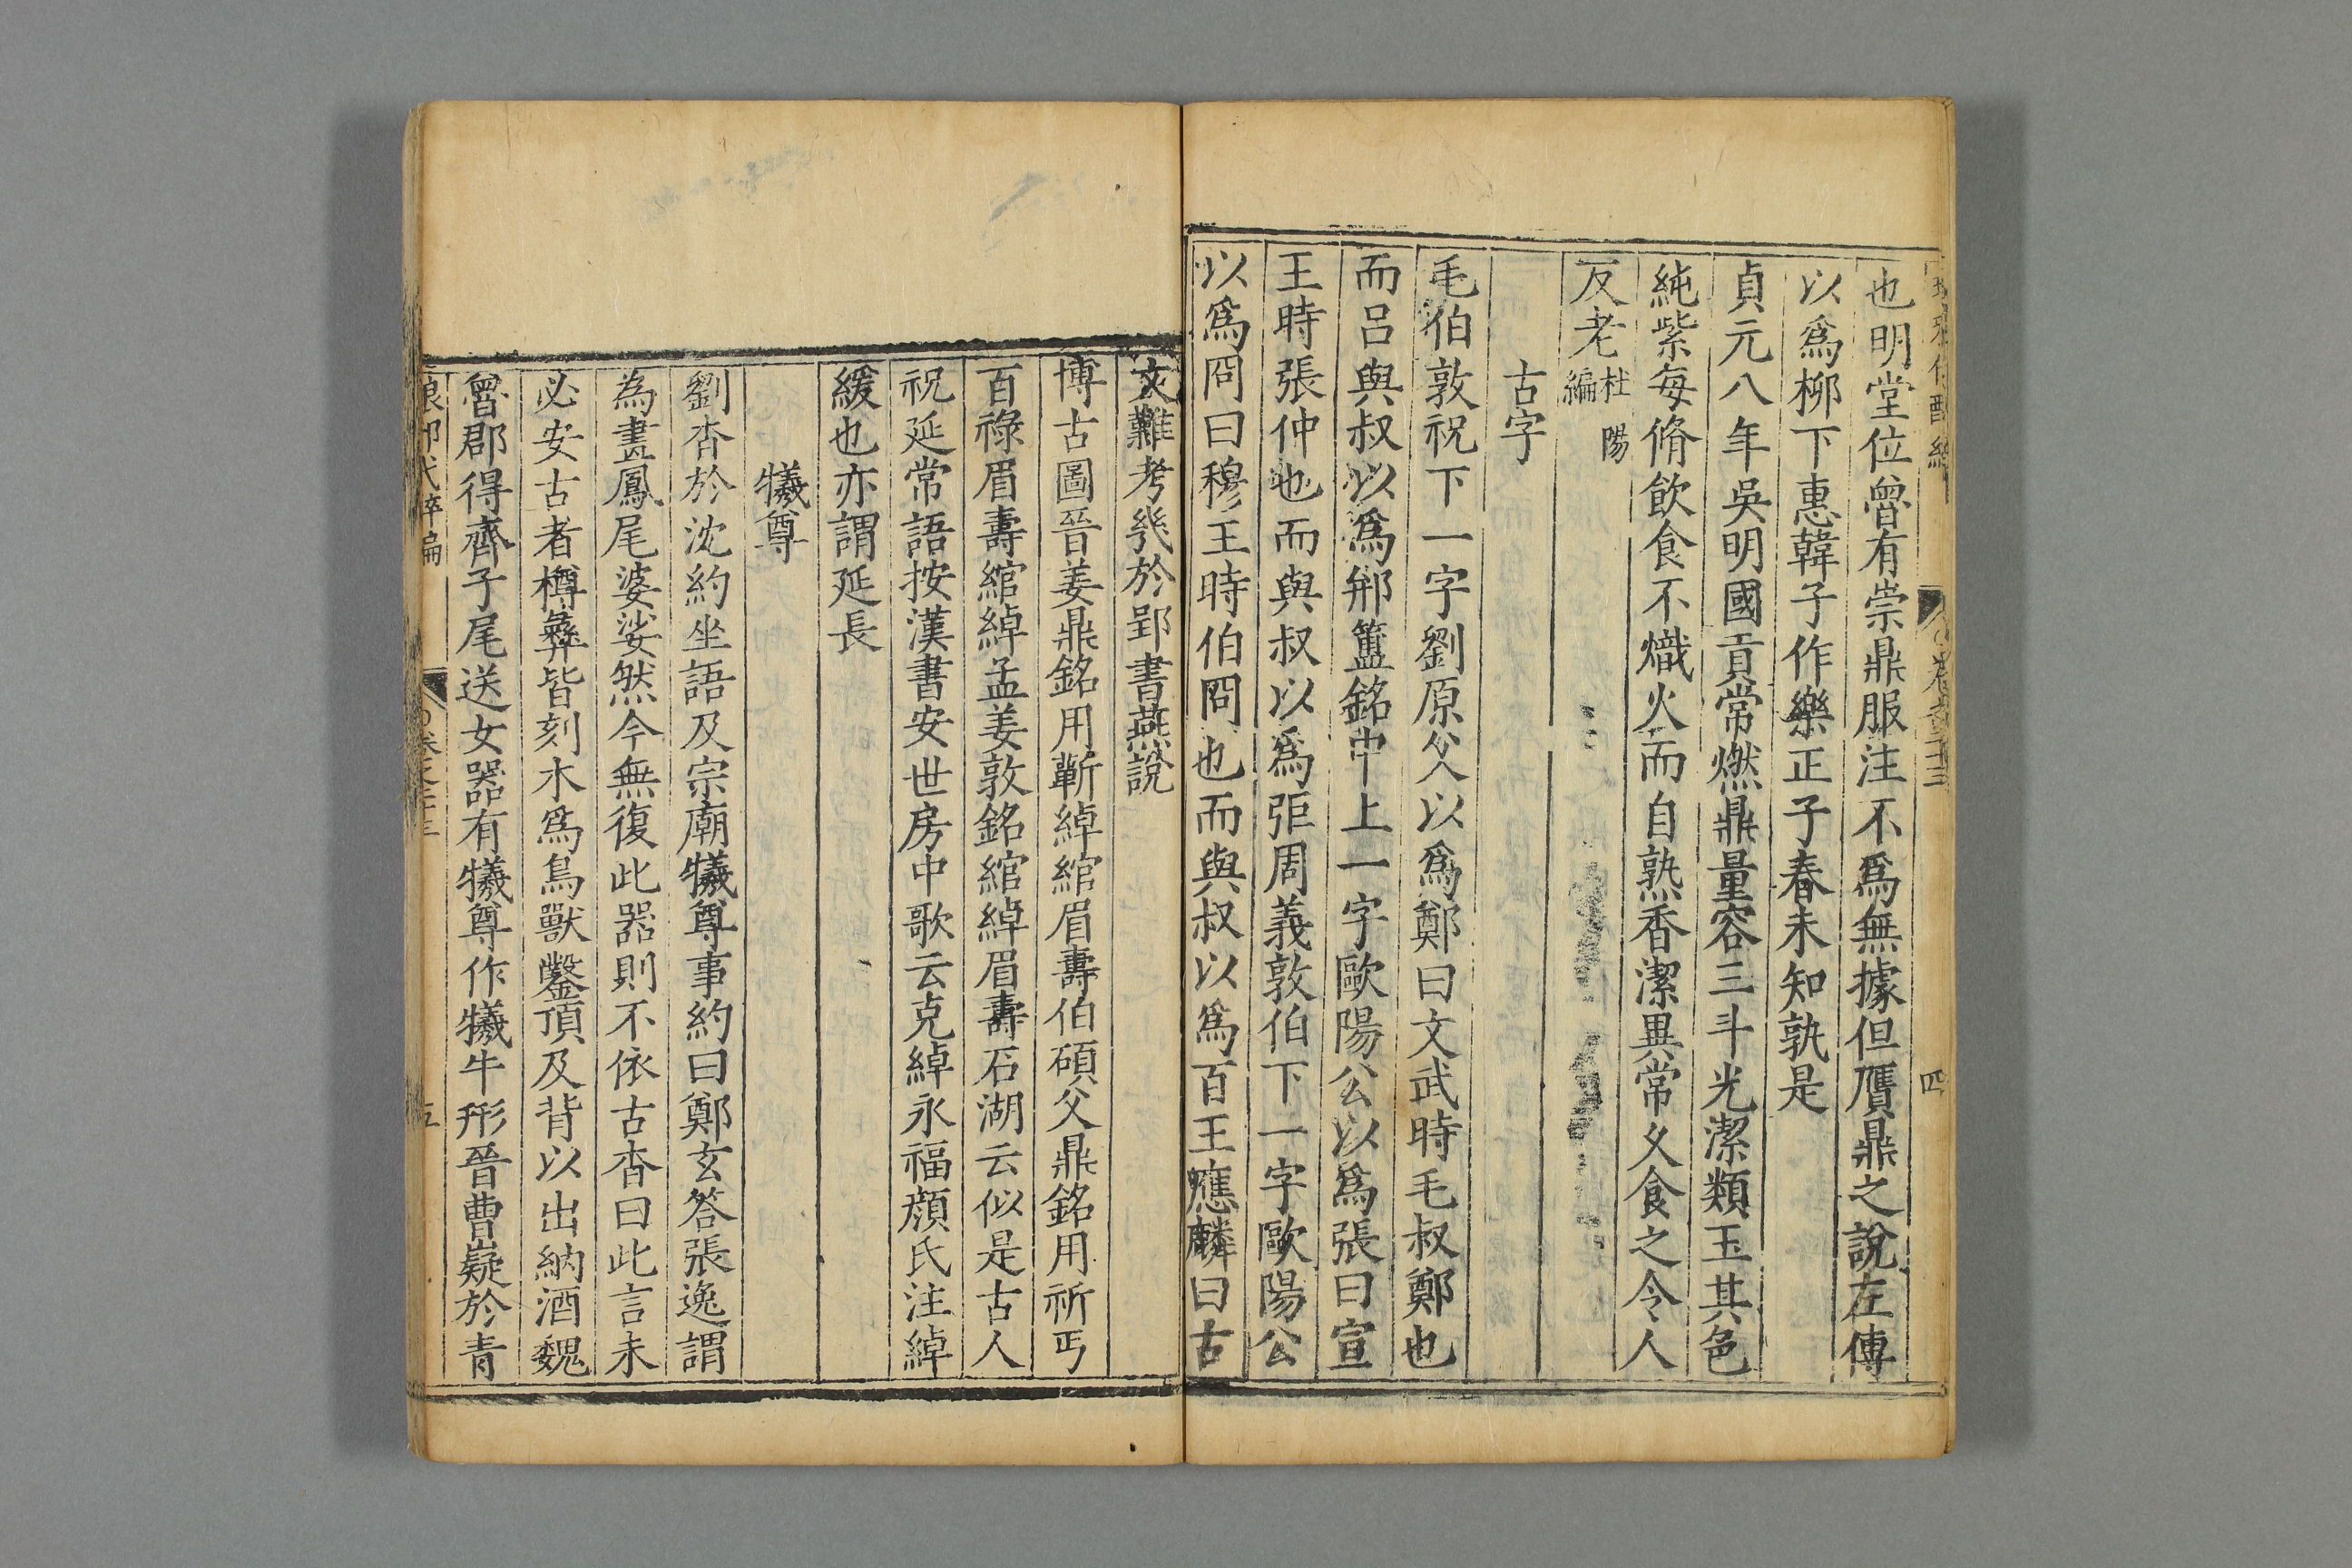 也明堂位曾有崇鼎服注不爲無據但贗鼎之說左傳
以爲柳下惠韓子作樂正子春未知孰是
貞元八年吳明國貢常燃鼎量容三斗光潔類玉其色
純紫每脩飲食不熾火而自熟香潔異常久食之令人
反老杜陽編
古字
毛伯敦祝下一字劉原父以爲鄭曰文武時毛叔鄭也
而呂與叔以爲䢵簠銘中上一字歐陽公以爲張曰宣
王時張仲也而與叔以爲弡周義敦伯下一字歐陽公
以爲冏曰穆王時伯冏也而與叔以爲百王應麟曰古
文難考㡬於郢書燕說
博古圖晉姜鼎銘用蘄綽綰眉壽伯碩父鼎銘用祈丐
百祿眉壽綰綽孟姜敦銘綰綽眉壽石湖云似是古人
祝延常語按漢書安世房中歌云克綽永福顏氏注綽
緩也亦謂延長
犧尊
劉杳於沈約坐語及宗廟犧尊事約曰鄭玄答張逸謂
為畫鳳尾婆娑然今無復此器則不依古杳曰此言未
必安古者樽彝皆刻木爲鳥獸鑿頂及背以出納酒魏
魯郡得齊子尾送女器有犧尊作犧牛形晉曹嶷於青
五
四